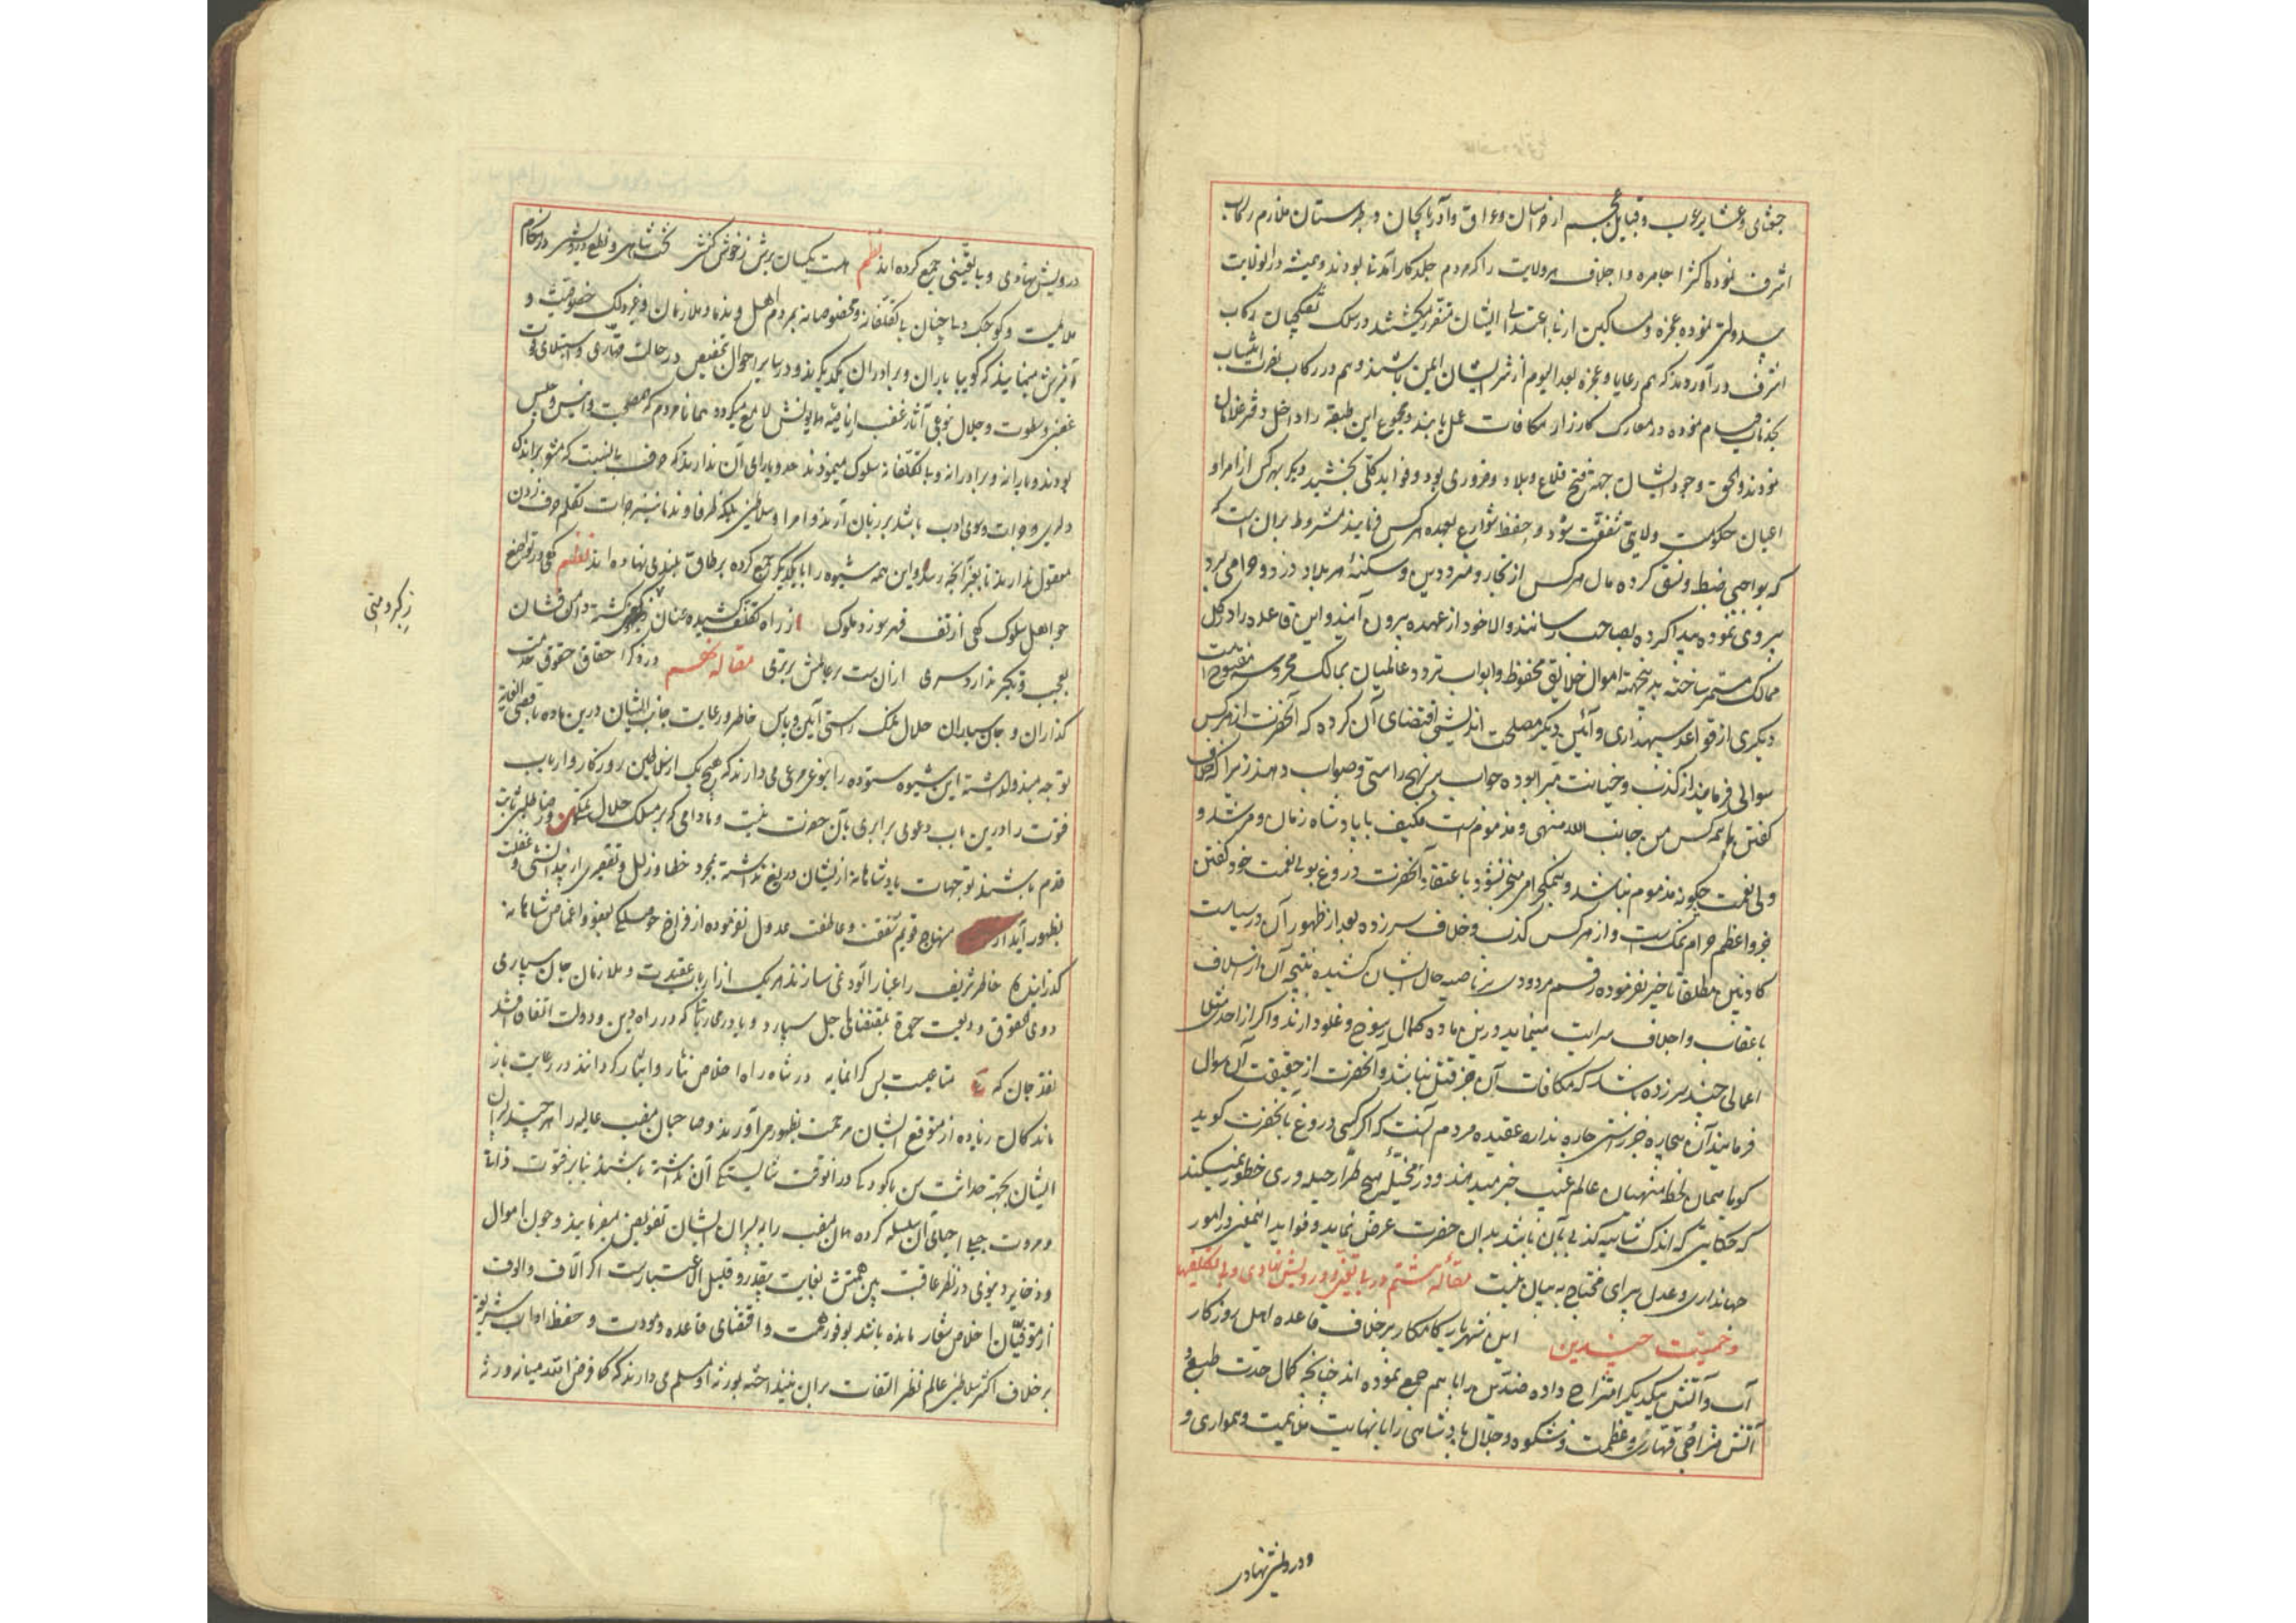 جغتای و عشایر عرب و قبایل عجم از خراسان و عراق و آذربایجان و طبرستان ملازم رکاب
اشرف نمودند اکثر اجامره و اجلاف هر ولایت را که مردم جلد کارآمدنی بودند و همیشه در ان ولایت
بیدولتی نموده عجزه و مساکین از بی اعتدالی ایشان متضرر میکشتند در سلک تفنکچیان رکاب
اشرف در آوردند که هم رعایا و عجزه بعد الیوم از شر ایشان ایمن باشند و هم در رکاب نصرت انتساب
بخدمات قیام نموده در معارک کارزار مکافات عمل یابند و مجموع این طبقه را داخل دفتر غلامان
نمودند و الحق وجود ایشان جهة فتح قلاع و بلاد ضروری بود و فواید کلی بخشید دیکر بهر کس از امرا و
اعیان حکومت ولایتی شفقت شود و حفظ شوارع بعهده هر کس فرمایند مشروط بران است که
که بواجبی ضبط و نسق کرده مال هر کس از تجار و مترددین و سکنهٔ هر بلاد دزد و حرامی برد
پیروی نموده پیدا کرده بصاحب رسانند والا خود از عهده بیرون آیند و این قاعده را در کل
ممالک مستمر ساخته بدینجهة اموال خلایق محفوظ و ابواب تردد عالمیان بممالک محروسه مفتوح است
دیکری از قواعد سپهداری و آئین دیکر مصلحت اندیشی اقتضای آن کرده که آنحضرت از هر کس
سوالی فرمایند از کذب و خیانت مبرا بوده جواب بر نهج راستی و صواب دهند زیرا که خلاف
کفتن با همه کس من جانب الله منهی و مذموم است فکیف با پادشاه زمان و مرشد و
ولی نعمت چکونه مذموم نباشد و بنمکحرامی منجر نشود باعتقاد آنحضرت دروغ بولی نعمت خود کفتن
جزو اعظم حرام نمکی است و از هر کس کذب و خلاف سر زده بعد از ظهور آن در سیاست
کاذبین مطلقا تاخیر نفرموده رقم مردودی بر ناصیه حال ایشان کشیده نتیجه آن از اسلاف
باعقاب و اخلاف سرایت مینماید و درین ماده کمال رسوخ و غلو دارند و اکر از احدی مثلا
اعمالی چند سر زده باشد که مکافات آن جز قتل نباشد و آنحضرت از حقیقت آن سوال
فرمایند آن بیچاره جز راستی چاره ندارد عقیده مردم آنست که اکر کسی دروغ بآنحضرت کوید
کویا همان لحظه منهیان عالم غیب خبر میدهند و در مخیلهٔ هیچ طرار حیله‌وری خطور نمیکند
که حکایتی که اندک شائبه کذبی بآن باشد بدان حضرت عرض نماید و فواید اینمعنی در امور
جهانداری و عدل پیرای محتاج به بیان نیست مقالهٔ هشتم در بی تعینی و درویش نهادی و بی تکلفیها
و جمعیت ضدین این شهریار کامکار برخلاف قاعده اهل روزکار
آب و آتش بیکدیکر امتزاج داده ضدین را با هم جمع نموده اند چنانچه کمال حدت طبع و
آتش مزاجی قهاری و عظمت و شکوه و جلال پادشاهی را با نهایت ملایمت و همواری و
و درویش نهادی
درویش نهادی و بی تعینی جمع کرده اند نظم هست یکسان برش ز خوش کنشی تخت شاهی و نطع درویشی در هنکام
ملایمت و کوچک دلی چنان بی تکلفانه و مخصوصانه بمردم اهل و ندما و ملازمان و غیر ذلک خصوصیت و
آمیزش مینمایند که کویا یاران و برادران یکدیکرند و در سایر احوال بتخصیص در حالت قهاری و استیلای قوت
غضبی و سطوت و جلال نوعی آثار غضب از ناصیه همایونش لامع میکردد همانا مردم که مصاحبت و انیس و جلیس
بودند و یارانه و برادرانه و بی تکلفانه سلوک مینمودند حد و یارای آن ندارند که حرف بالنسبت که مشعر براندک
دلیری و جرات و سوء ادب باشد بر زبان آرند و امرا و سلاطین بلکه ظرفا و ندما نیز جرات تکلم حرف زدن
معقول ندارند تا بغیر آنچه رسد و این همه شیوه را با یکدیکر جمع کرده بر طاق بلندی نهاده اند نظم کهی در تواضع
چو اهل سلوک کهی از تف قهر سوزد ملوک از راه تکلف کشیده عنان ز کبر و منی کشته دامن فشان
بعجب و تکبر ندارد سری ازان است بر عالمش برتری مقاله نهم در ذکر احقاق حقوق خدمت
کذاران و جان سپاران حلال نمک راستی آیین و پاس خاطر و رعایت جانب ایشان درین ماده باقصی الغایه
توجه مبذول داشته این شیوه ستوده را بنوعی مرعی میدارند که هیچ یک از سلاطین روزکار و ارباب
فتوت را درین باب دعوی برابری بآن حضرت نیست و مادامی که بر مسلک حلال نمکی و رضا طلبی ثابت
قدم باشند توجهات پادشاهانه ازیشان دریغ نداشته بمجرد خطا و زلل و تقصیری از بیدانشی و غفلت
بظهور آید از منهاج قویم شفقت و عاطفت عدول نفرموده از فراخ حوصلکی بعفو و اغماض شاهانه
کذرانیده خاطر شریف را غبارآلود نمی سازند هر یک از ارباب عقیدت و ملازمان جان سپاری
ذوی الحقوق ودیعت حیوة بمقتضای اجل سپارد و یا در محاربات که در راه دین و دولت اتفاق افتد
نقد جان که متاعیست بس کرانمایه در شاه راه اخلاص نثار و ایثار کردانند در رعایت باز
ماندکان زیاده از متوقع ایشان مرحمت بظهور می آورند و صاحبان منصب عالیه را هر چند پسران
ایشان بجهة حداثت سن یا کودکی در آنوقت شایستکی آن نداشته باشند بنابر فتوت ذاتی
و مروت جبلی احیای آن سلسله کرده همان منصب را به پسران ایشان تفویض میفرمایند و چون اموال
و ذخایر دنیوی در نظر عاقبت بین همتش بغایت بیقدر و قلیل الاعتبارست اکر آلاف و الوف
از متوفیان اخلاص شعار مانده باشد بوفور همت و اقتضای قاعده مودت و حفظ اداب شریعت
برخلاف اکثر سلاطین عالم نظر التفات بران نینداخته بورثه او مسلم می دارند که کما فرض الله میانه ورثه
ز کبر و منی